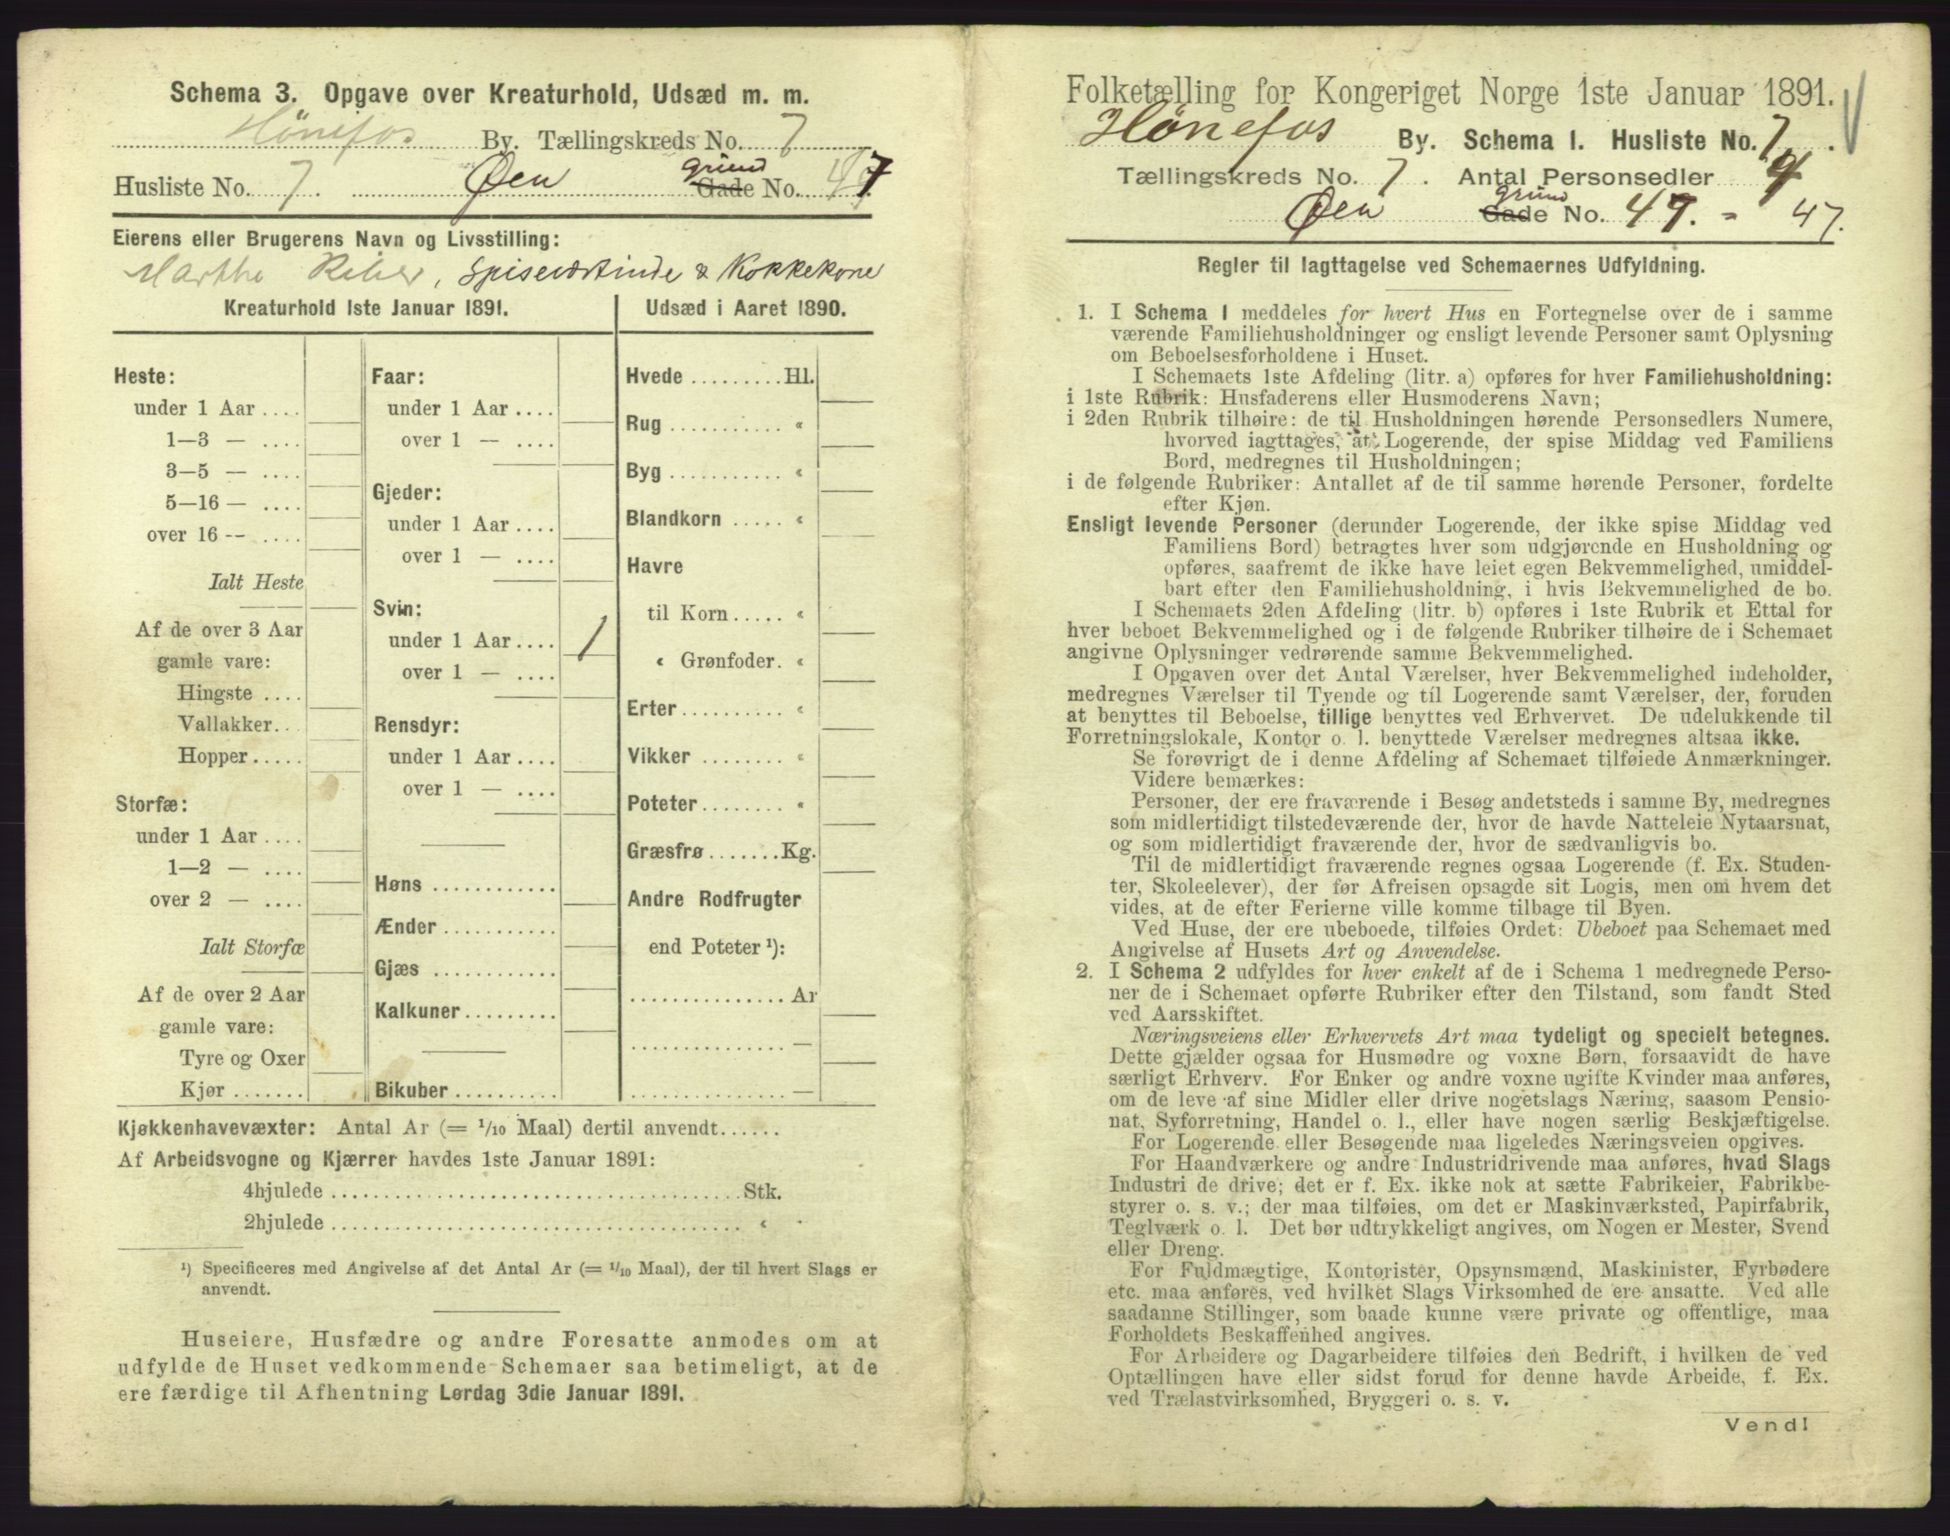 Schema 3. Opgave over Kreaturhold, Udsæd m. m.
Hönefos By. Tællingskreds No. 7
Husliste No. 7. Øen grund Gade No. 47
Eierens eller Brugerens Navn og Livsstilling:
Marthe Riber, Spiseværtinde & Kokkekone
Kreaturhold 1ste Januar 1891.
Udsæd i Aaret 1890.
Heste:
under 1 Aar ....
1—3 — ....
3—5 — ....
5—16 — ....
over 16 -- ....
Ialt Heste
Af de over 3 Aar
gamle vare:
Hingste ....
Vallakker...
Hopper.....
Storfæ:
under 1 Aar ....
1—2 — ....
over 2 — ....
Ialt Storfæ
Af de over 2 Aar
gamle vare:
Tyre og Oxer
Kjør .......
Faar:
under 1 Aar ....
over 1 — ....
Gjeder:
under 1 Aar ....
over 1 — ....
Svin:
under 1 Aar .... 1
over 1 — ....
Rensdyr:
under 1 Aar ....
over 1 — ....
Høns ............
Ænder ...........
Gjæs ............
Kalkuner.........
Bikuber ..........
Hvede .........Hl.
Rug ........... «
Byg ........... «
Blandkorn ..... «
Havre
til Korn..... «
« Grønfoder. «
Erter.......... «
Vikker ........ «
Poteter........ «
Græsfrø.......Kg.
Andre Rodfrugter
end Poteter ¹):
............... Ar
............... —
............... —
Kjøkkenhavevæxter: Antal Ar (= 1/10 Maal) dertil anvendt......
Af Arbeidsvogne og Kjærrer havdes 1ste Januar 1891:
4hjulede ....................................Stk.
2hjulede .................................... «
¹) Specificeres med Angivelse af det Antal Ar (= 1/10 Maal), der til hvert Slags er
anvendt.
Huseiere, Husfædre og andre Foresatte anmodes om at
udfylde de Huset vedkommende Schemaer saa betimeligt, at de
ere færdige til Afhentning Lørdag 3die Januar 1891.
Folketælling for Kongeriget Norge 1ste Januar 1891.
Hönefos By. Schema I. Husliste No. 7.
Tællingskreds No. 7. Antal Personsedler 4
Øen grund Gade No. 47. = 47.
Regler til Iagttagelse ved Schemaernes Udfyldning.
1. I Schema I meddeles for hvert Hus en Fortegnelse over de i samme
værende Familiehusholdninger og ensligt levende Personer samt Oplysning
om Beboelsesforholdene i Huset.
I Schemaets 1ste Afdeling (litr. a) opføres for hver Familiehusholdning:
i 1ste Rubrik: Husfaderens eller Husmoderens Navn;
i 2den Rubrik tilhøire: de til Husholdningen hørende Personsedlers Numere,
hvorved iagttages, at Logerende, der spise Middag ved Familiens
Bord, medregnes til Husholdningen;
i de følgende Rubriker: Antallet af de til samme hørende Personer, fordelte
efter Kjøn.
Ensligt levende Personer (derunder Logerende, der ikke spise Middag ved
Familiens Bord) betragtes hver som udgjørende en Husholdning og
opføres, saafremt de ikke have leiet egen Bekvemmelighed, umiddel-
bart efter den Familiehusholdning, i hvis Bekvemmelighed de bo.
I Schemaets 2den Afdeling (litr. b) opføres i 1ste Rubrik et Ettal for
hver beboet Bekvemmelighed og i de følgende Rubriker tilhøire de i Schemaet
angivne Oplysninger vedrørende samme Bekvemmelighed.
I Opgaven over det Antal Værelser, hver Bekvemmelighed indeholder,
medregnes Værelser til Tyende og til Logerende samt Værelser, der, foruden
at benyttes til Beboelse, tillige benyttes ved Erhvervet. De udelukkende til
Forretningslokale, Kontor o. l. benyttede Værelser medregnes altsaa ikke.
Se forøvrigt de i denne Afdeling af Schemaet tilføiede Anmærkninger.
Videre bemærkes:
Personer, der ere fraværende i Besøg andetsteds i samme By, medregnes
som midlertidigt tilstedeværende der, hvor de havde Natteleie Nytaarsnat,
og som midlertidigt fraværende der, hvor de sædvanligvis bo.
Til de midlertidigt fraværende regnes ogsaa Logerende (f. Ex. Studen-
ter, Skoleelever), der før Afreisen opsagde sit Logis, men om hvem det
vides, at de efter Ferierne ville komme tilbage til Byen.
Ved Huse, der ere ubeboede, tilføies Ordet: Ubeboet paa Schemaet med
Angivelse af Husets Art og Anvendelse.
2. I Schema 2 udfyldes for hver enkelt af de i Schema 1 medregnede Perso-
ner de i Schemaet opførte Rubriker efter den Tilstand, som fandt Sted
ved Aarsskiftet.
Næringsveiens eller Erhvervets Art maa tydeligt og specielt betegnes.
Dette gjælder ogsaa for Husmødre og voxne Børn, forsaavidt de have
særligt Erhverv. For Enker og andre voxne ugifte Kvinder maa anføres,
om de leve af sine Midler eller drive nogetslags Næring, saasom Pensio-
nat, Syforretning, Handel o. l., eller have nogen særlig Beskjæftigelse.
For Logerende eller Besøgende maa ligeledes Næringsveien opgives.
For Haandværkere og andre Industridrivende maa anføres, hvad Slags
Industri de drive; det er f. Ex. ikke nok at sætte Fabrikeier, Fabrikbe-
styrer o. s. v.; der maa tilføies, om det er Maskinværksted, Papirfabrik,
Teglværk o. l. Det bør udtrykkeligt angives, om Nogen er Mester, Svend
eller Dreng.
For Fuldmægtige, Kontorister, Opsynsmænd, Maskinister, Fyrbødere
etc. maa anføres, ved hvilket Slags Virksomhed de ere ansatte. Ved alle
saadanne Stillinger, som baade kunne være private og offentlige, maa
Forholdets Beskaffenhed angives.
For Arbeidere og Dagarbeidere tilføies den Bedrift, i hvilken de ved
Optællingen have eller sidst forud for denne havde Arbeide, f. Ex.
ved Trælastvirksomhed, Bryggeri o. s. v.
Vend!